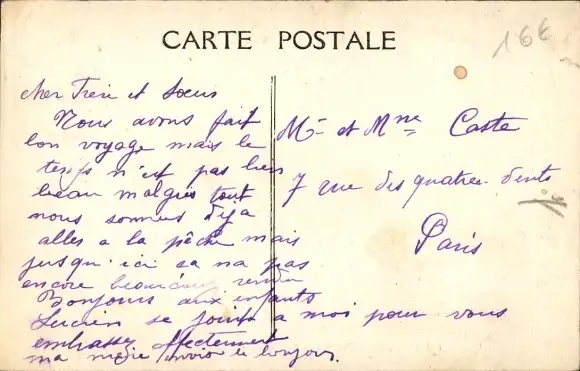 CARTE POSTALE
16€
cher Frère et Sœurs
Nous avons fait
bon voyage mais le
temps n'est pas bien
beau malgrés tout
nous sommes déja
alles a la pêche mais
jusqu'ici sa na pas
encore beaucoup rendu
Bonjours aux enfants
Lucien se joint a moi pour vous
embrasser affectement
ma mère envoie le bonjour.
Mr et Mme Caste
7 rue des quatre-Vents
Paris